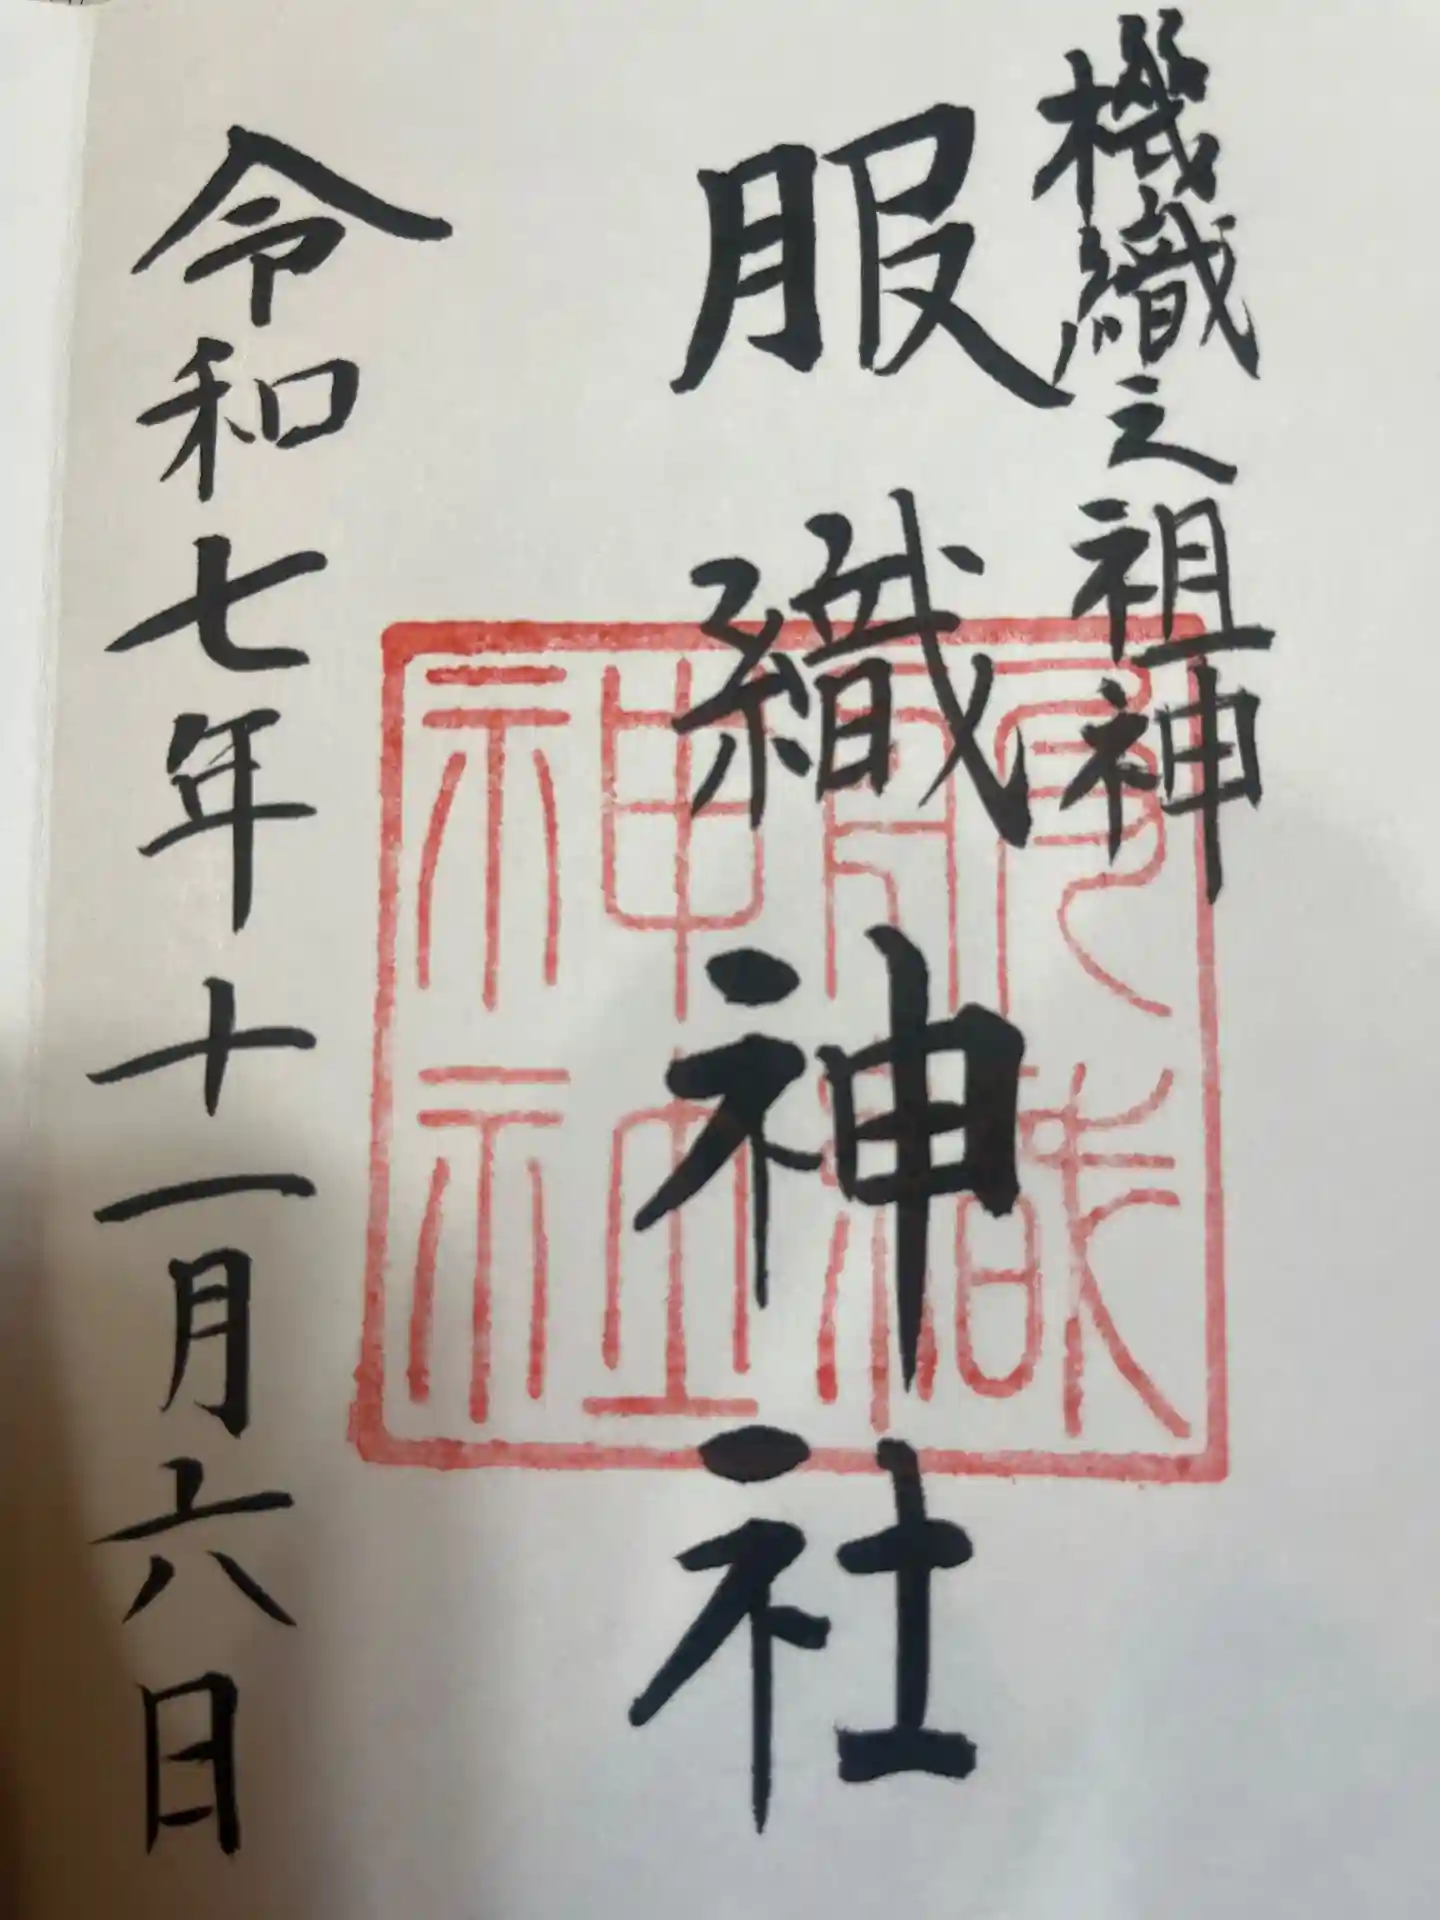 機織之祖神
服織神社
服織神社
令和七年十一月六日